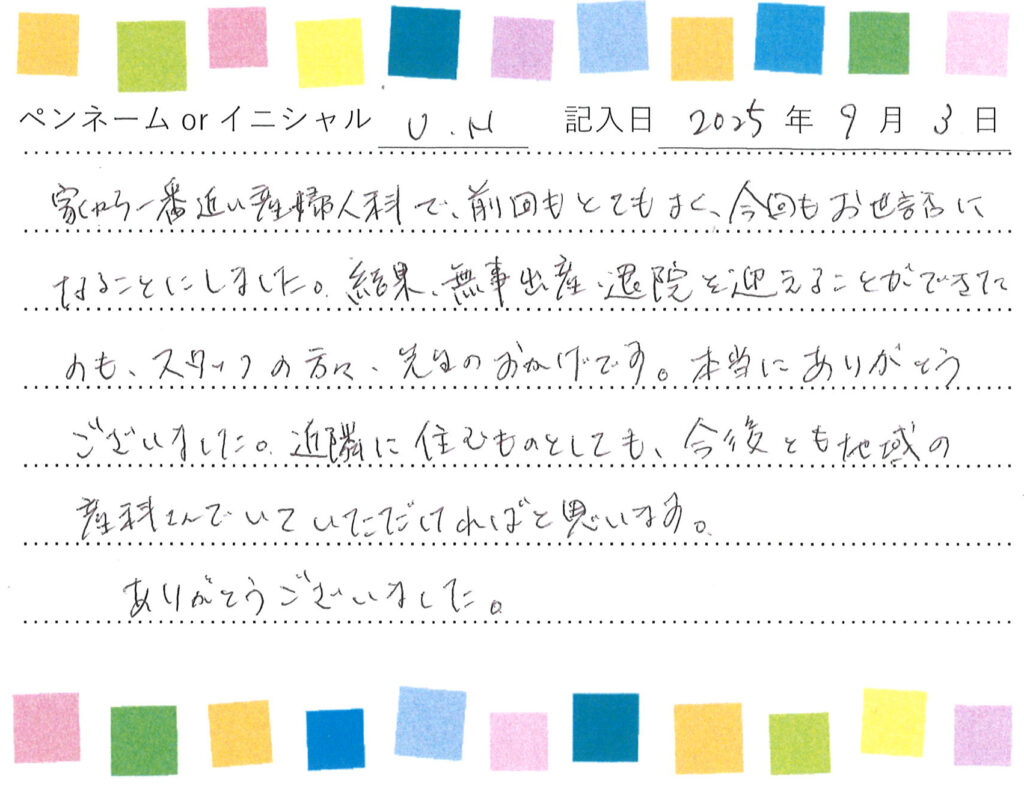 ペンネーム or イニシャル U.N 記入日 2025年9月3日
家から一番近い産婦人科で、前回もとてもよく、今回もお世話に
なることにしました。結果、無事出産・退院を迎えることができた
のも、スタッフの方々、先生のおかげです。本当にありがとう
ございました。近隣に住むものとしても、今後とも地域の
産科さんでいていただければと思います。
ありがとうございました。